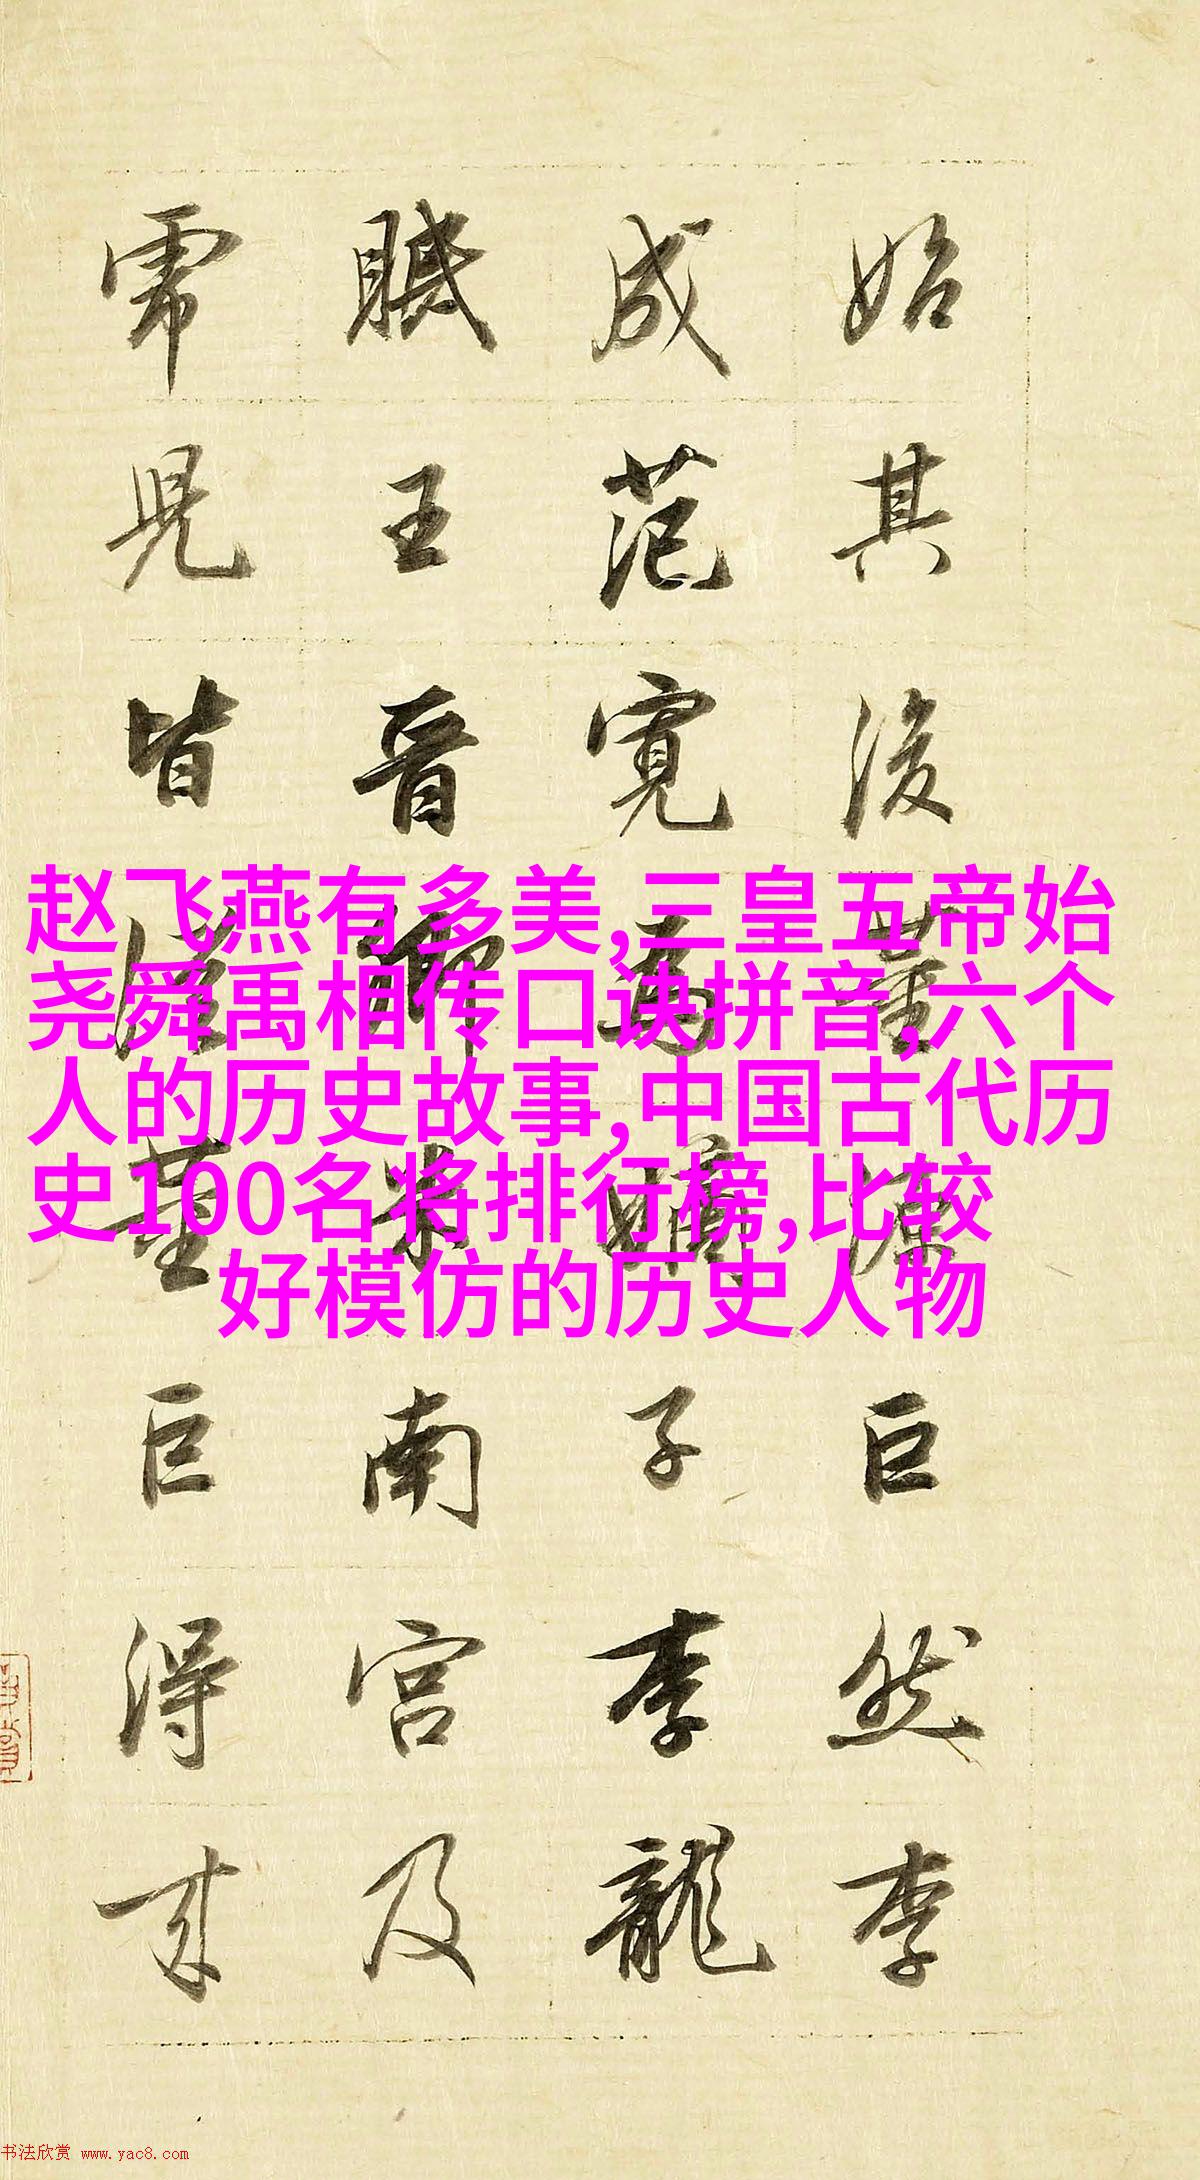 始其後董源巨然李
成范寬為嫡子李龍
眠王晉卿米南宮及
虎兒皆從董巨得来
赵飞燕有多美,三皇五帝始
尧舜禹相传口诀拼音,六个
人的历史故事,中国古代历
史100名将排行榜,比较
好模仿的历史人物
书法欣赏 www.yac8.com